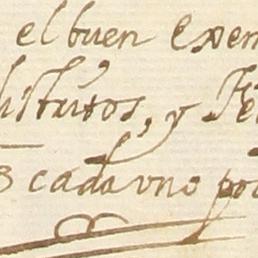 el buen Exem
stitutos, y Fe
cada vno po